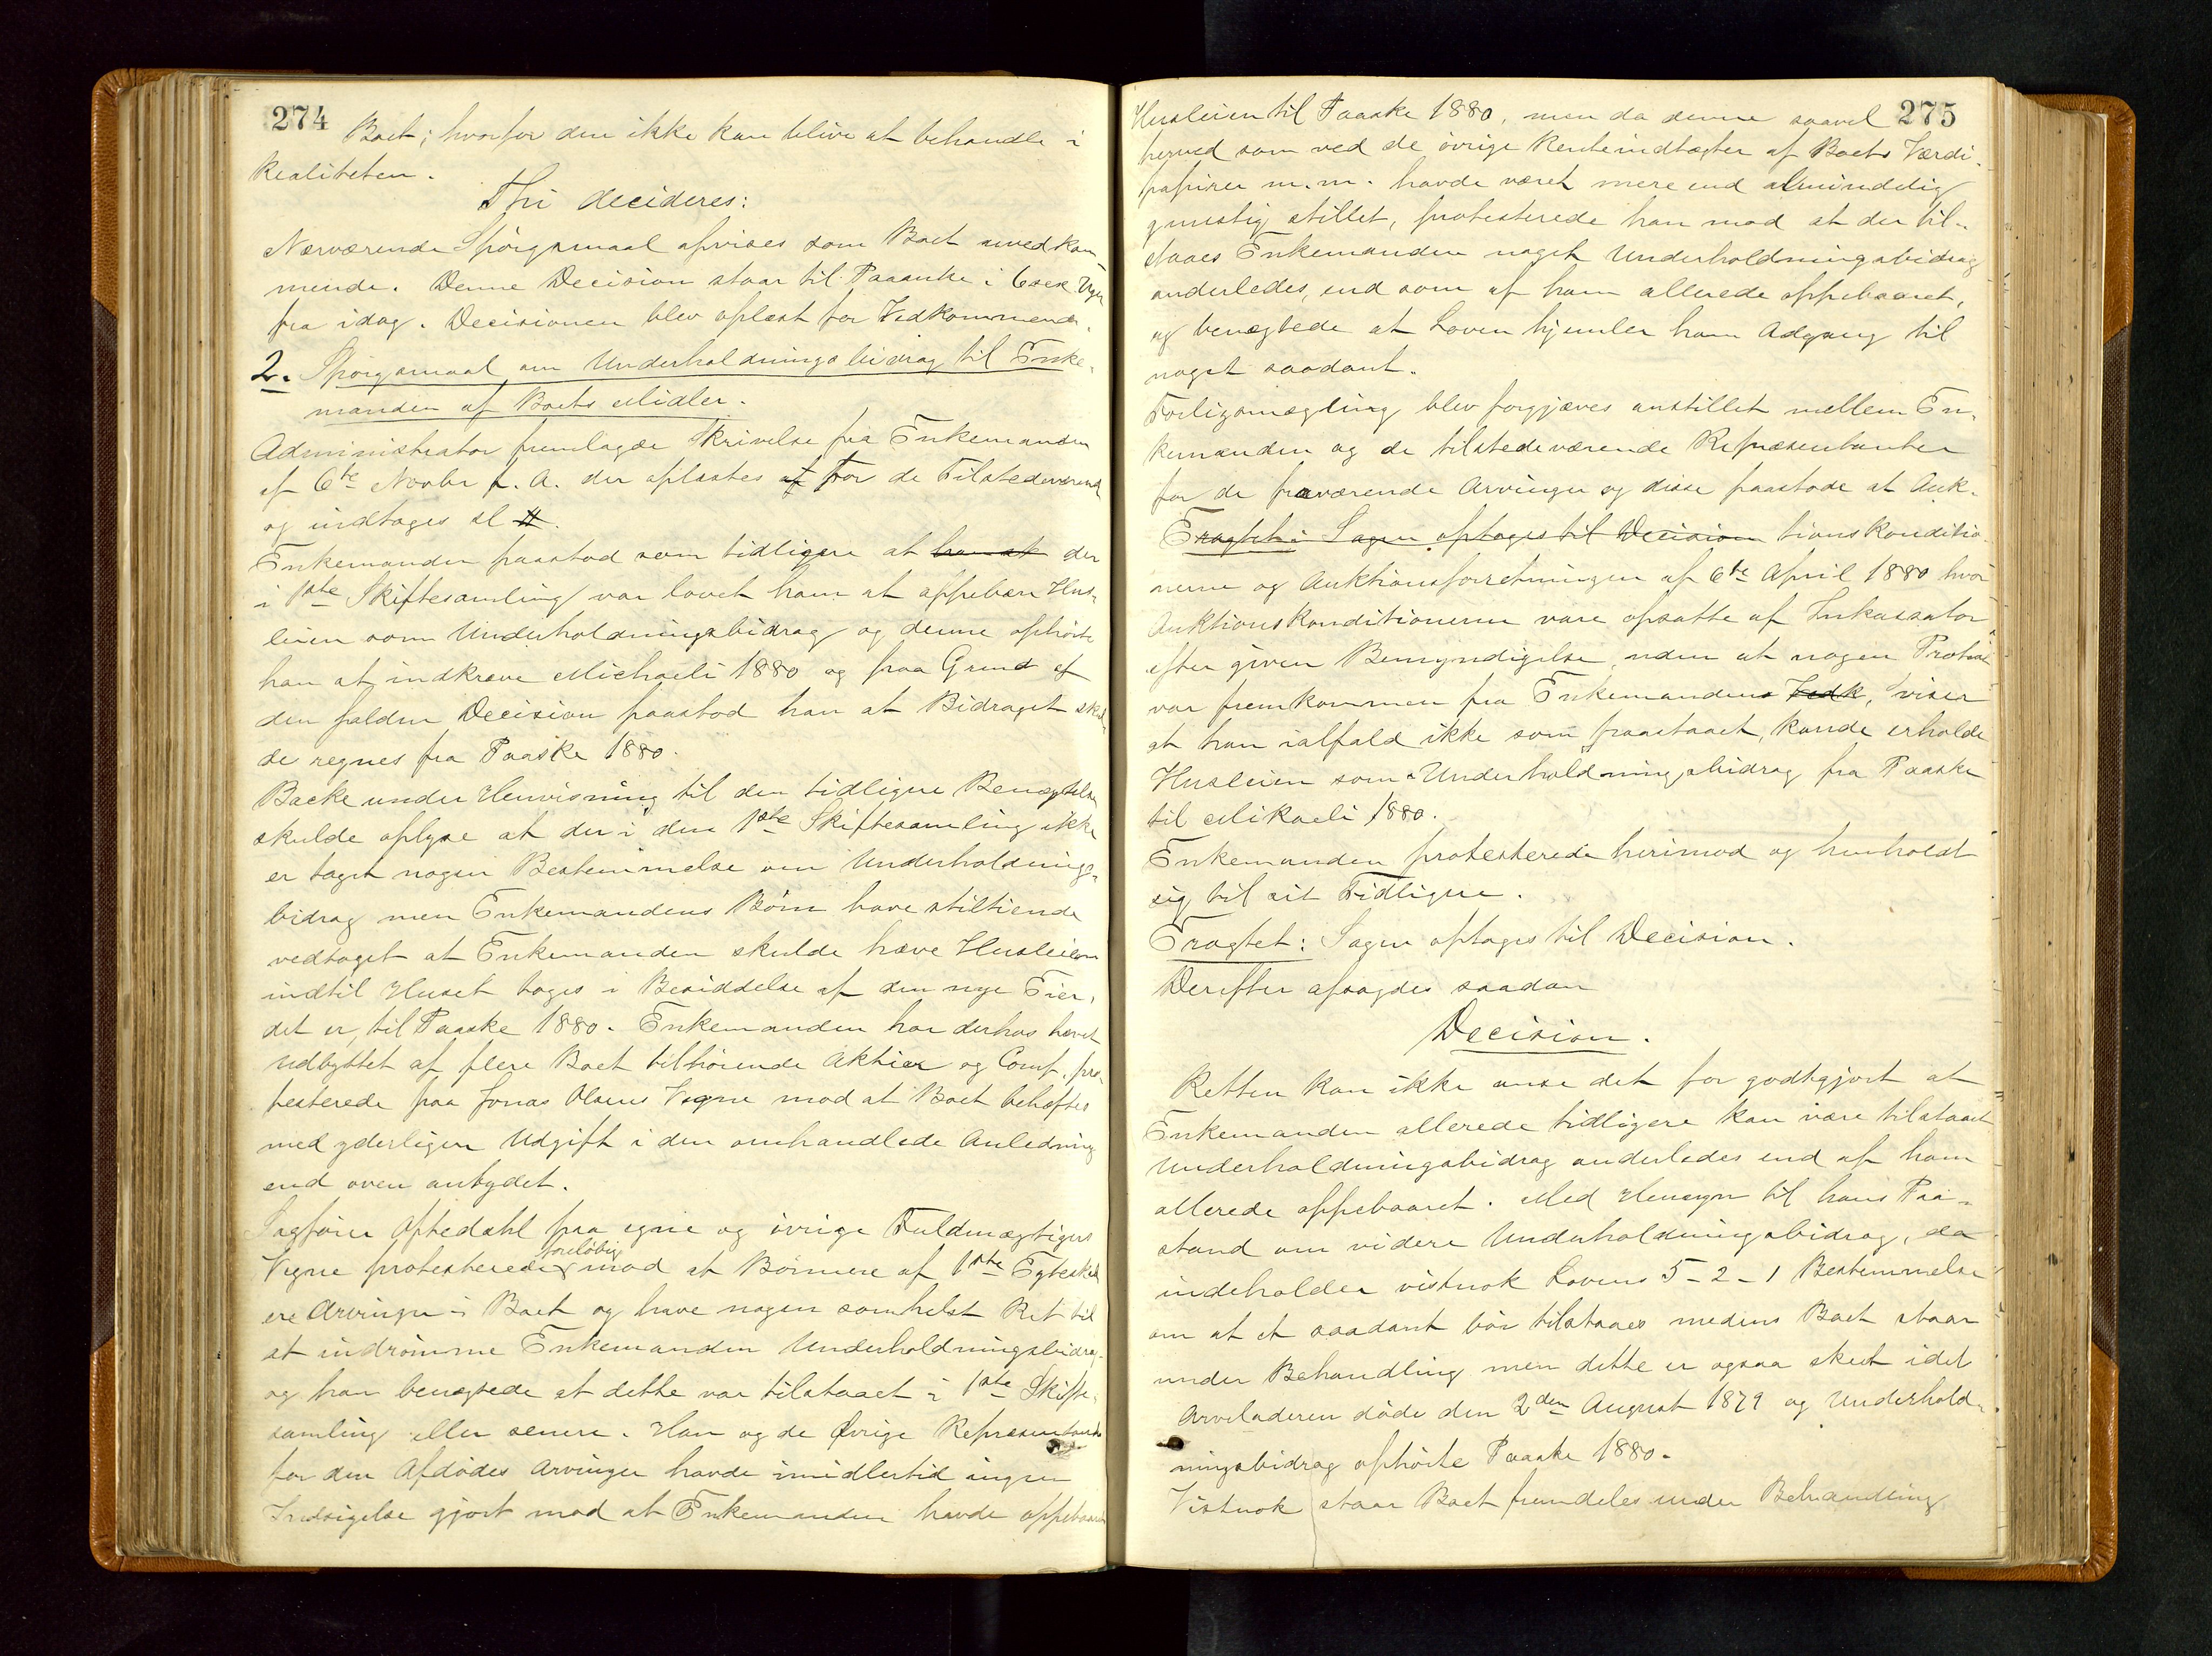 274
Boet; hvorfor den ikke kan blive at behandle i
Realiteten.
Thi decideres:
Nærværende Spørgsmaal afvises som Boet uvedkom-
mende. Denne Decision staar til Paaanke i 6 sex Uger
fra idag. Decisionen blev oplæst for Vedkommende.
2. Spørgsmaal om Underholdningsbidrag til Enke-
manden af Boets Midler.
Administrator fremlagde Skrivelse fra Enkemanden
af 6te Novbr f. A. der oplæstes af for de Tilstedeværende
og indtages sl #.
Enkemanden paastod som tidligere at han at der
i 1ste Skiftesamling var lovet ham at oppebære Hus-
leien som Underholdningsbidrag og denne ophørte
han at indkræve Michaeli 1880 og paa Grund af
den faldne Decision paastod han at Bidraget skul-
de regnes fra Paaske 1880.
Backe under Henvisning til den tidligere Benægtelse
skulde oplyse at der i den 1ste Skiftesamling ikke
er taget nogen Bestemmelse om Underholdnings-
bidrag men Enkemandens Børn have stiltiende
vedtaget at Enkemanden skulde hæve Husleien
indtil Huset toges i Besiddelse af den nye Eier,
det er, til Paaske 1880. Enkemanden har derhos hævet
Udbyttet af flere Boet tilhørende Aktier og Comp. pro-
testerede paa Jonas Olsens Vegne mod at Boet behæftes
med yderligere Udgift i den omhandlede Anledning
end oven antydet.
Sagfører Oftedahl paa egne og øvrige Fuldmægtigers
Vegne protesterede foreløbig mod at Børnene af 1ste Egteskab
ere Arvinger i Boet og have nogen somhelst Ret til
at indrømme Enkemanden Underholdningsbidrag
og han benægtede at dette var tilstaaet i 1ste Skifte-
samling eller senere. Han og de Øvrige Repræsentanter
for den Afdødes Arvinger havde imidlertid ingen
Indsigelse gjort mod at Enkemanden havde oppebaaret
275
Husleien til Paaske 1880, men da denne saavel
herved som ved de øvrige Renteindtægter af Boets Værdi-
papirer m.m. havde været mere end almindelig
gunstig stillet, protesterede han mod at der til-
staaes Enkemanden noget Underholdningsbidrag
anderledes, end som af ham allerede oppebaaret,
og benægtede at Loven hjemler ham Adgang til
noget saadant.
Forligsmægling blev forgjæves anstillet mellem En-
kemanden og de tilstedeværende Repræsentanter
for de fraværende Arvinger og disse paastode at Auk-
Eragtet: Sagen optages til Decision tionskonditio-
nerne og Auktionsforretningen af 6te April 1880 hvor
Auktionskonditionerne vare opsatte af Inkassator
efter given Bemyndigelse, uden at nogen Protest
var fremkommen fra Enkemandens Vedk, viser
at han ialfald ikke som paastaaet, kunde erholde
Husleien som Underholdningsbidrag fra Paaske
til Mikaeli 1880.
Enkemanden protesterede herimod og henholdt
sig til sit Tidligere.
Eragtet: Sagen optages til Decision.
Derefter afsagdes saadan
Decision.
Retten kan ikke anse det for godtgjort at
Enkemanden allerede tidligere kan være tilstaaet
Underholdningsbidrag anderledes end af ham
allerede oppebaaret. Med Hensyn til hans Paa-
stand om videre Underholdningsbidrag, da
indeholder vistnok Lovens 5-2-1 Bestemmelse
om at et saadant bør tilstaaes medens Boet staar
under Behandling men dette er ogsaa skeet idet
Arveladeren døde den 2den August 1879 og Underhold-
ningsbidrag ophørte Paaske 1880.
Vistnok staar Boet fremdeles under Behandling